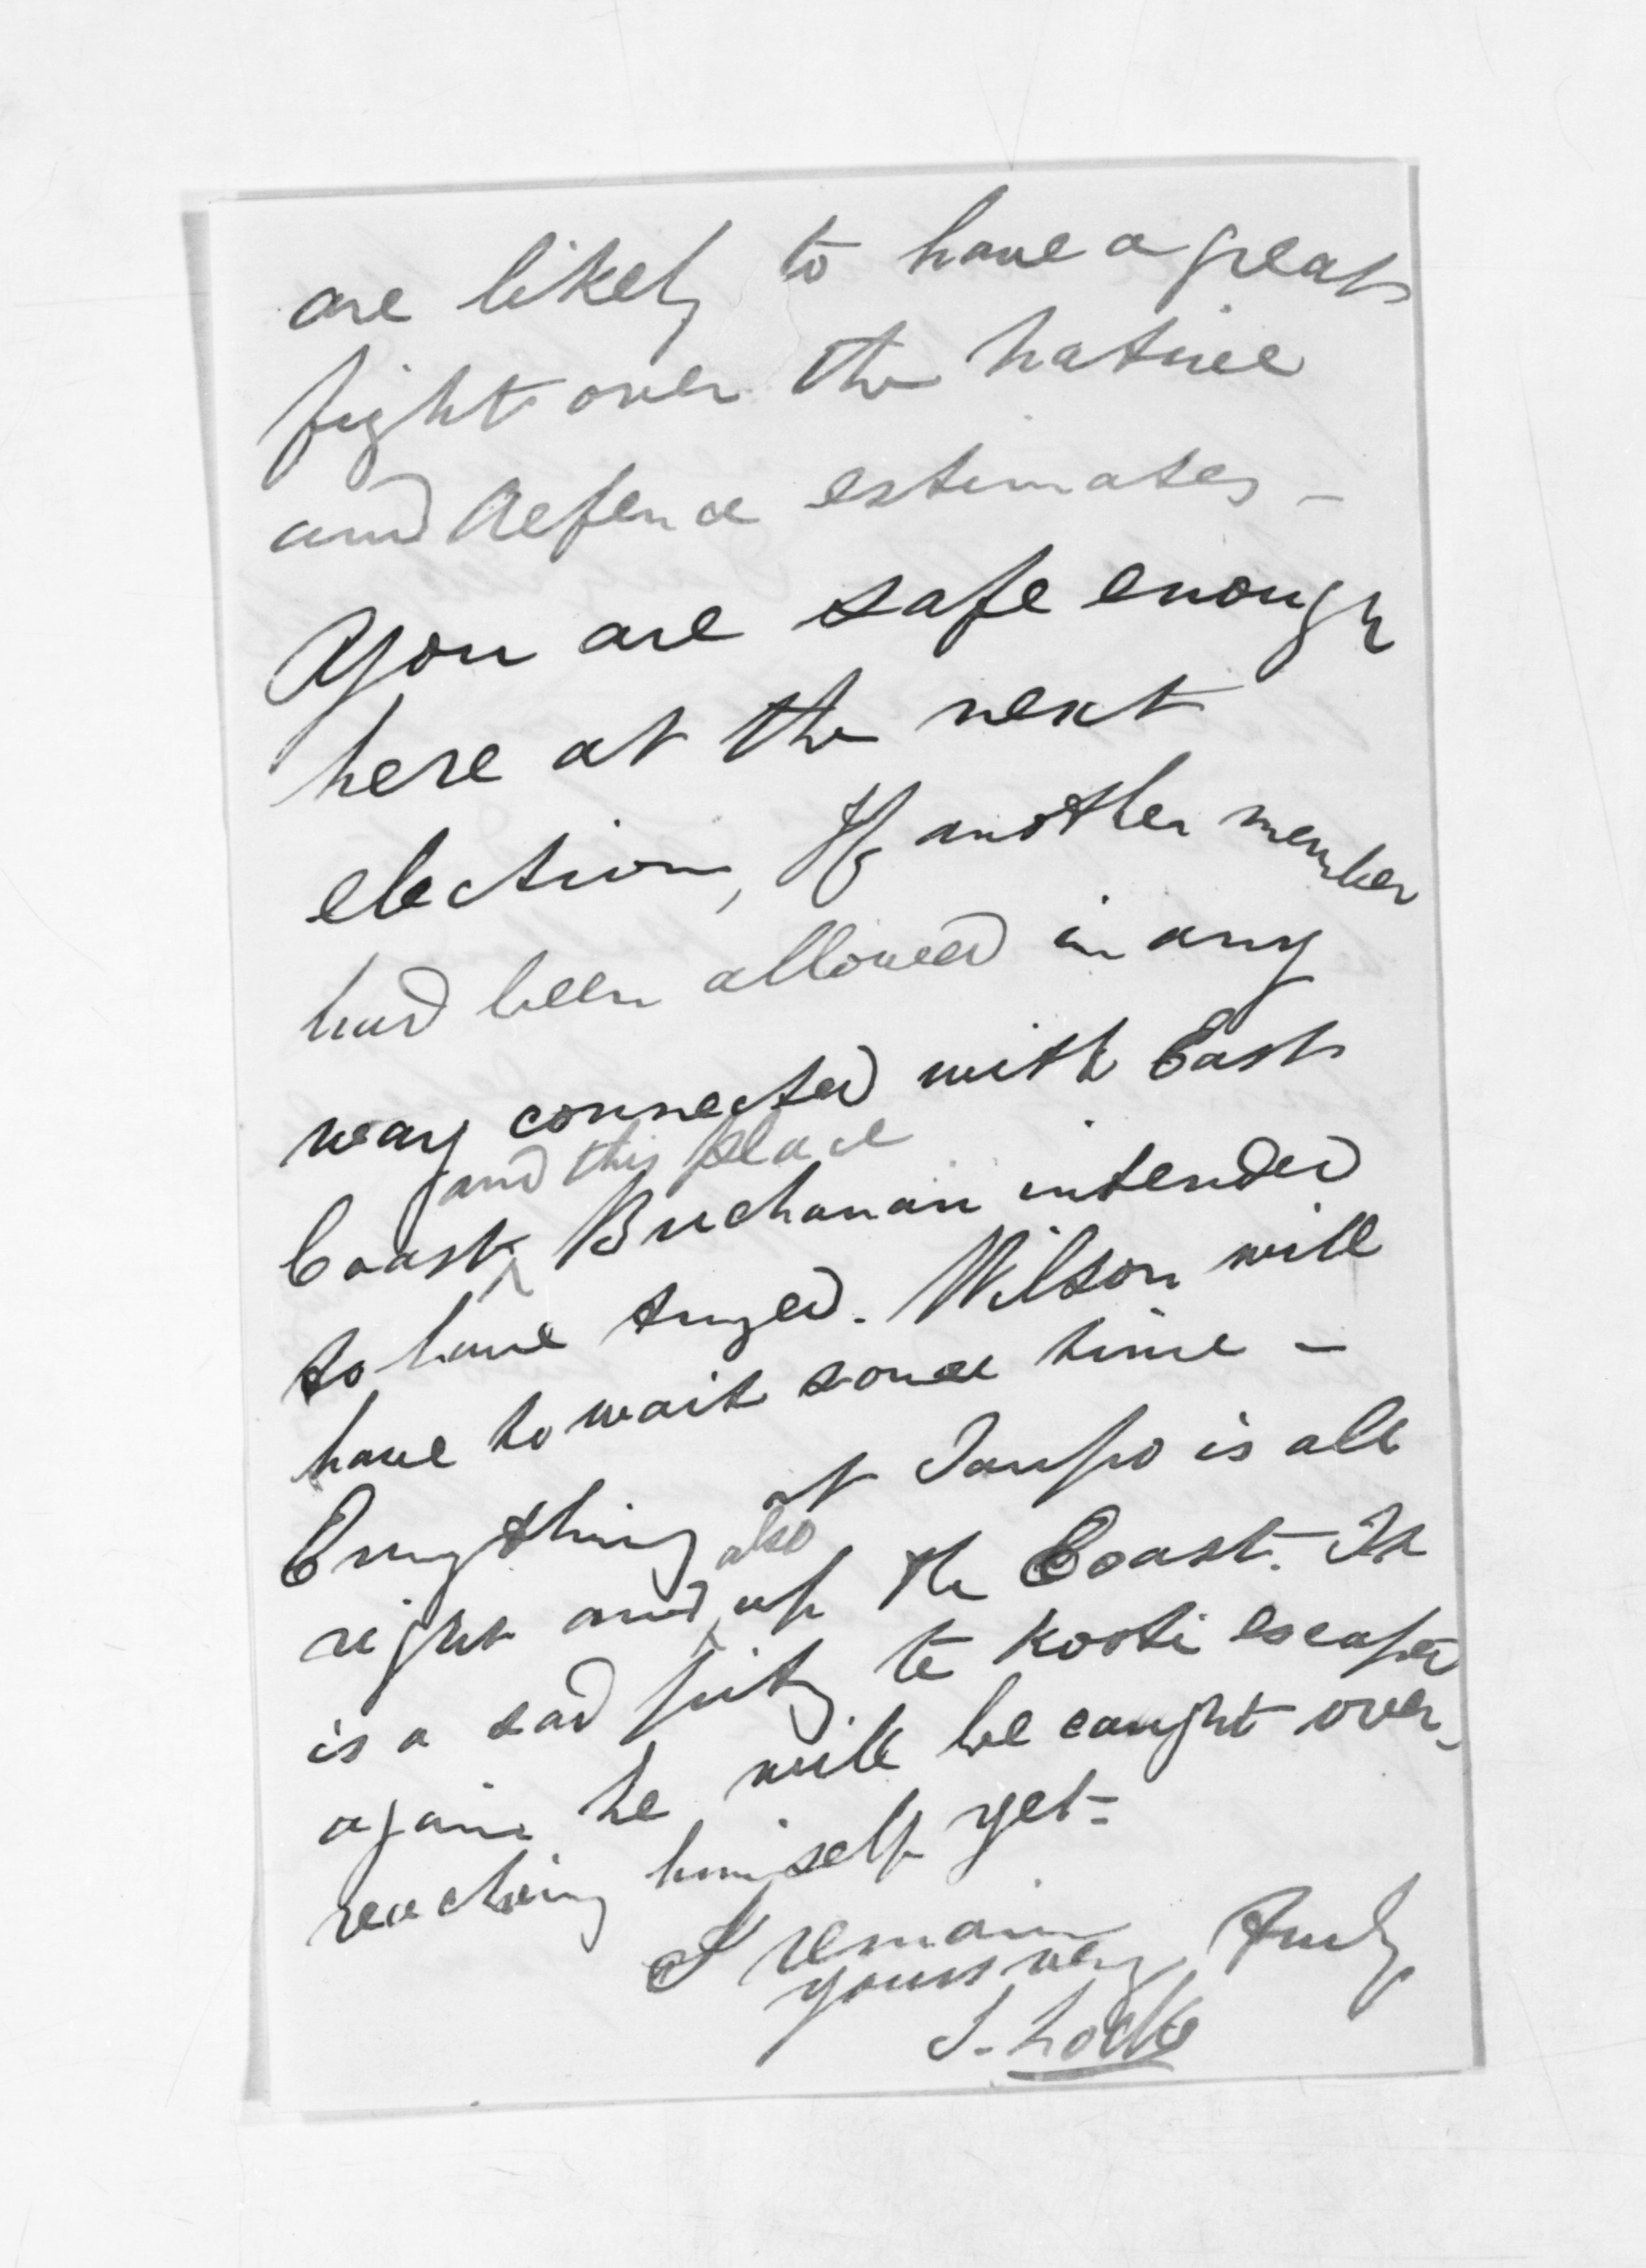 are likely to have a great
fight over the Native
and defence estimates -
You are safe enough
here at the next
election, If another member
had been allowed in any
way connected with East
and this place
Coast Buchanan intended
to have tryed. Wilson will
have to wait some time -
Everything at Taupo is all
also
right and up the Coast. It
is a sad pity te Kooti escaped
again he will be caught over-
reaching himself yet -
I remain
yours very truly
S. Locke